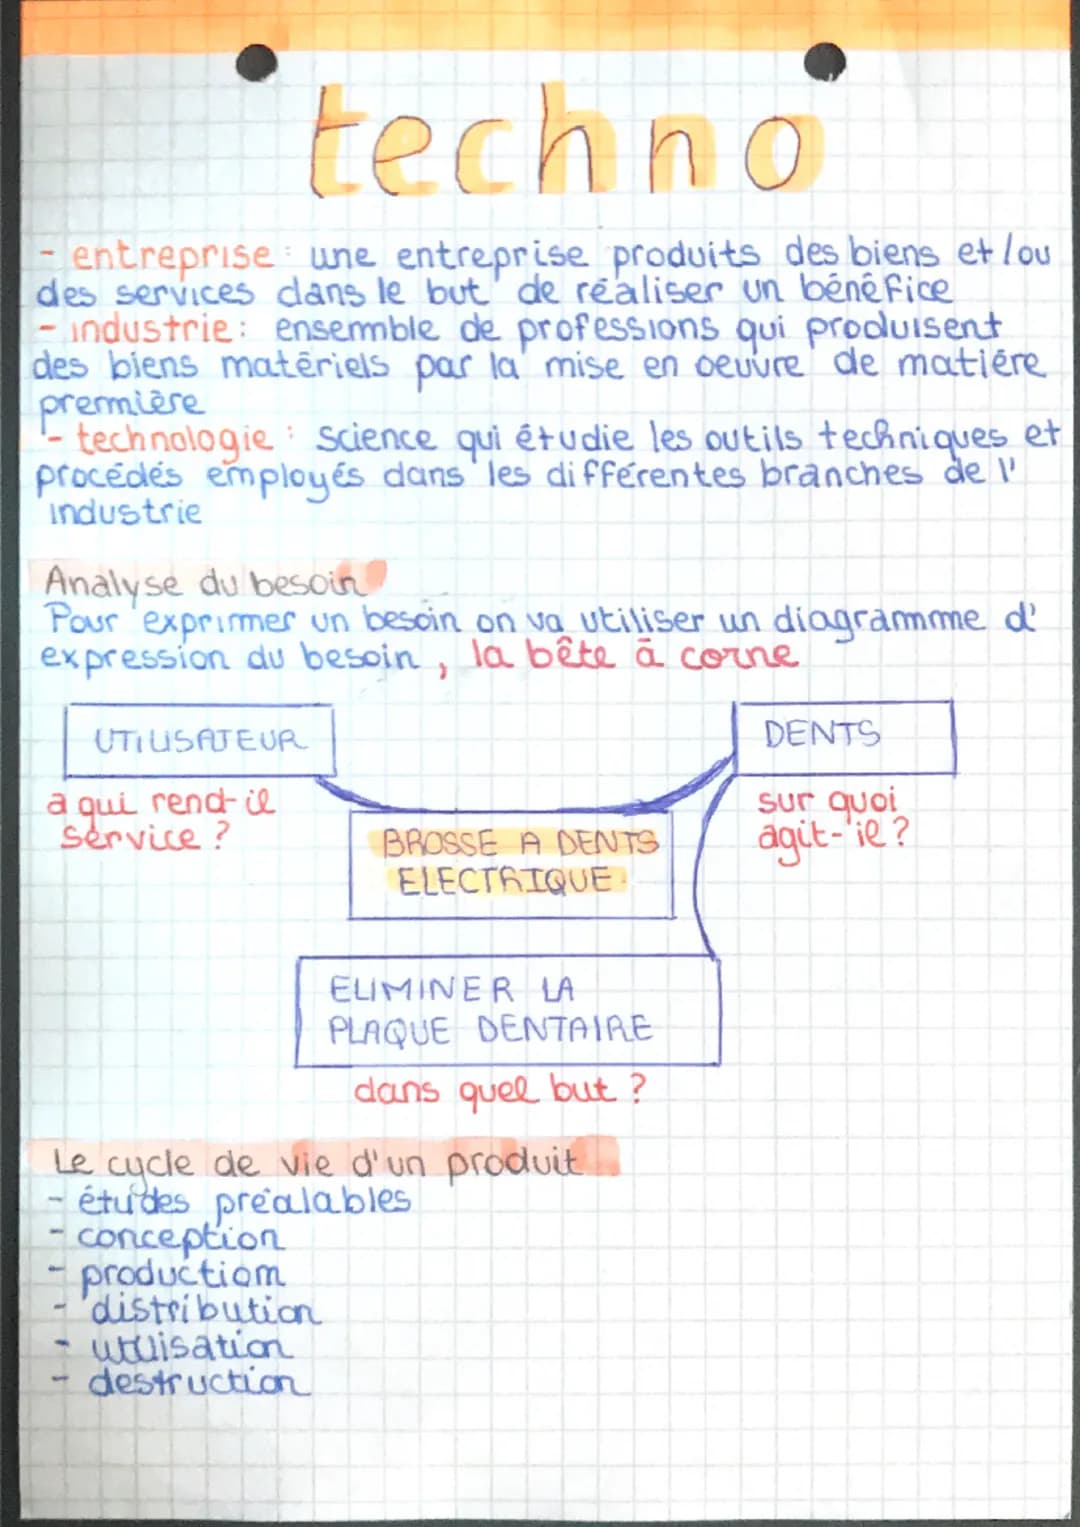 techno
- entreprise : une entreprise produits des biens et/ou
des services dans le but de réaliser un bénéfice
- industrie : ensemble de professions qui produisent
des biens matériels par la mise en oeuvre de matiére
première
- technologie : Science qui étudie les outils techniques et
procédés employés dans les différentes branches de l'
industrie
Analyse du besoin
Pour exprimer un besoin on va utiliser un diagramme d'
expression du besoin, la bête à corne
UTILISATEUR
DENTS
a qui rend-il
service ?
sur quoi
agit-il ?
BROSSE A DENTS
ELECTRIQUE
ELIMINER LA
PLAQUE DENTAIRE
dans quel but ?
Le cycle de vie d'un produit
- études préalables
- conception
- production
- distribution
- utilisation
- destruction